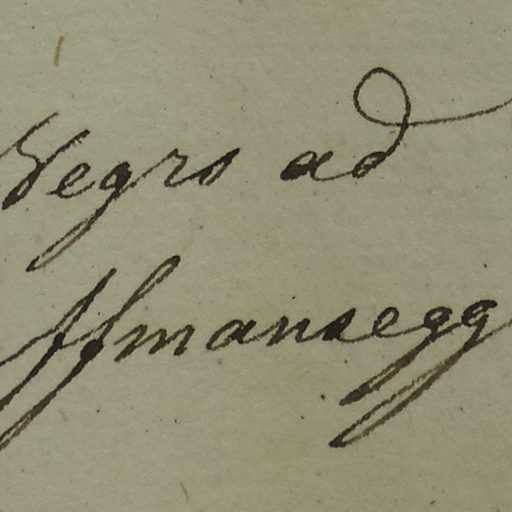 Negro ad
ffmansegg